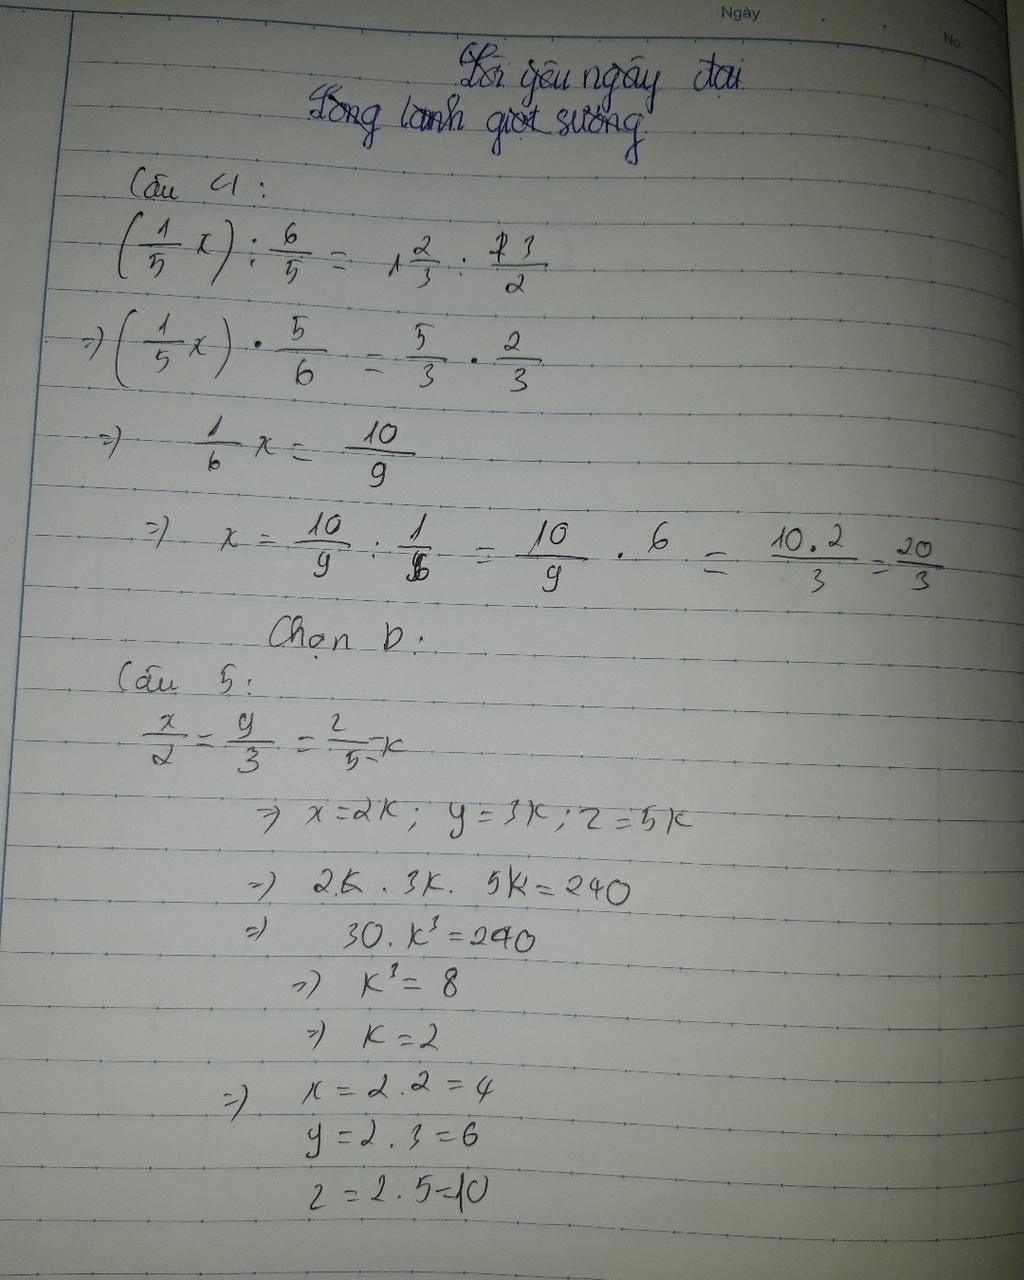 Ngày
No.
Lời yêu ngây dại
Long lanh giọt sương.
Câu 4:
(1/5 x) : 6/5 = 1 2/3 : 3/2
=> (1/5 x) . 5/6 = 5/3 . 2/3
=> 1/6 x = 10/9
=> x = 10/9 : 1/6 = 10/9 . 6 = 10.2/3 = 20/3
Chọn D.
Câu 5:
x/2 = y/3 = z/5 = k
=> x = 2k; y = 3k; z = 5k
=> 2k . 3k . 5k = 240
=> 30. k³ = 240
=> k³ = 8
=> k = 2
=> x = 2.2 = 4
y = 2.3 = 6
z = 2.5 = 10